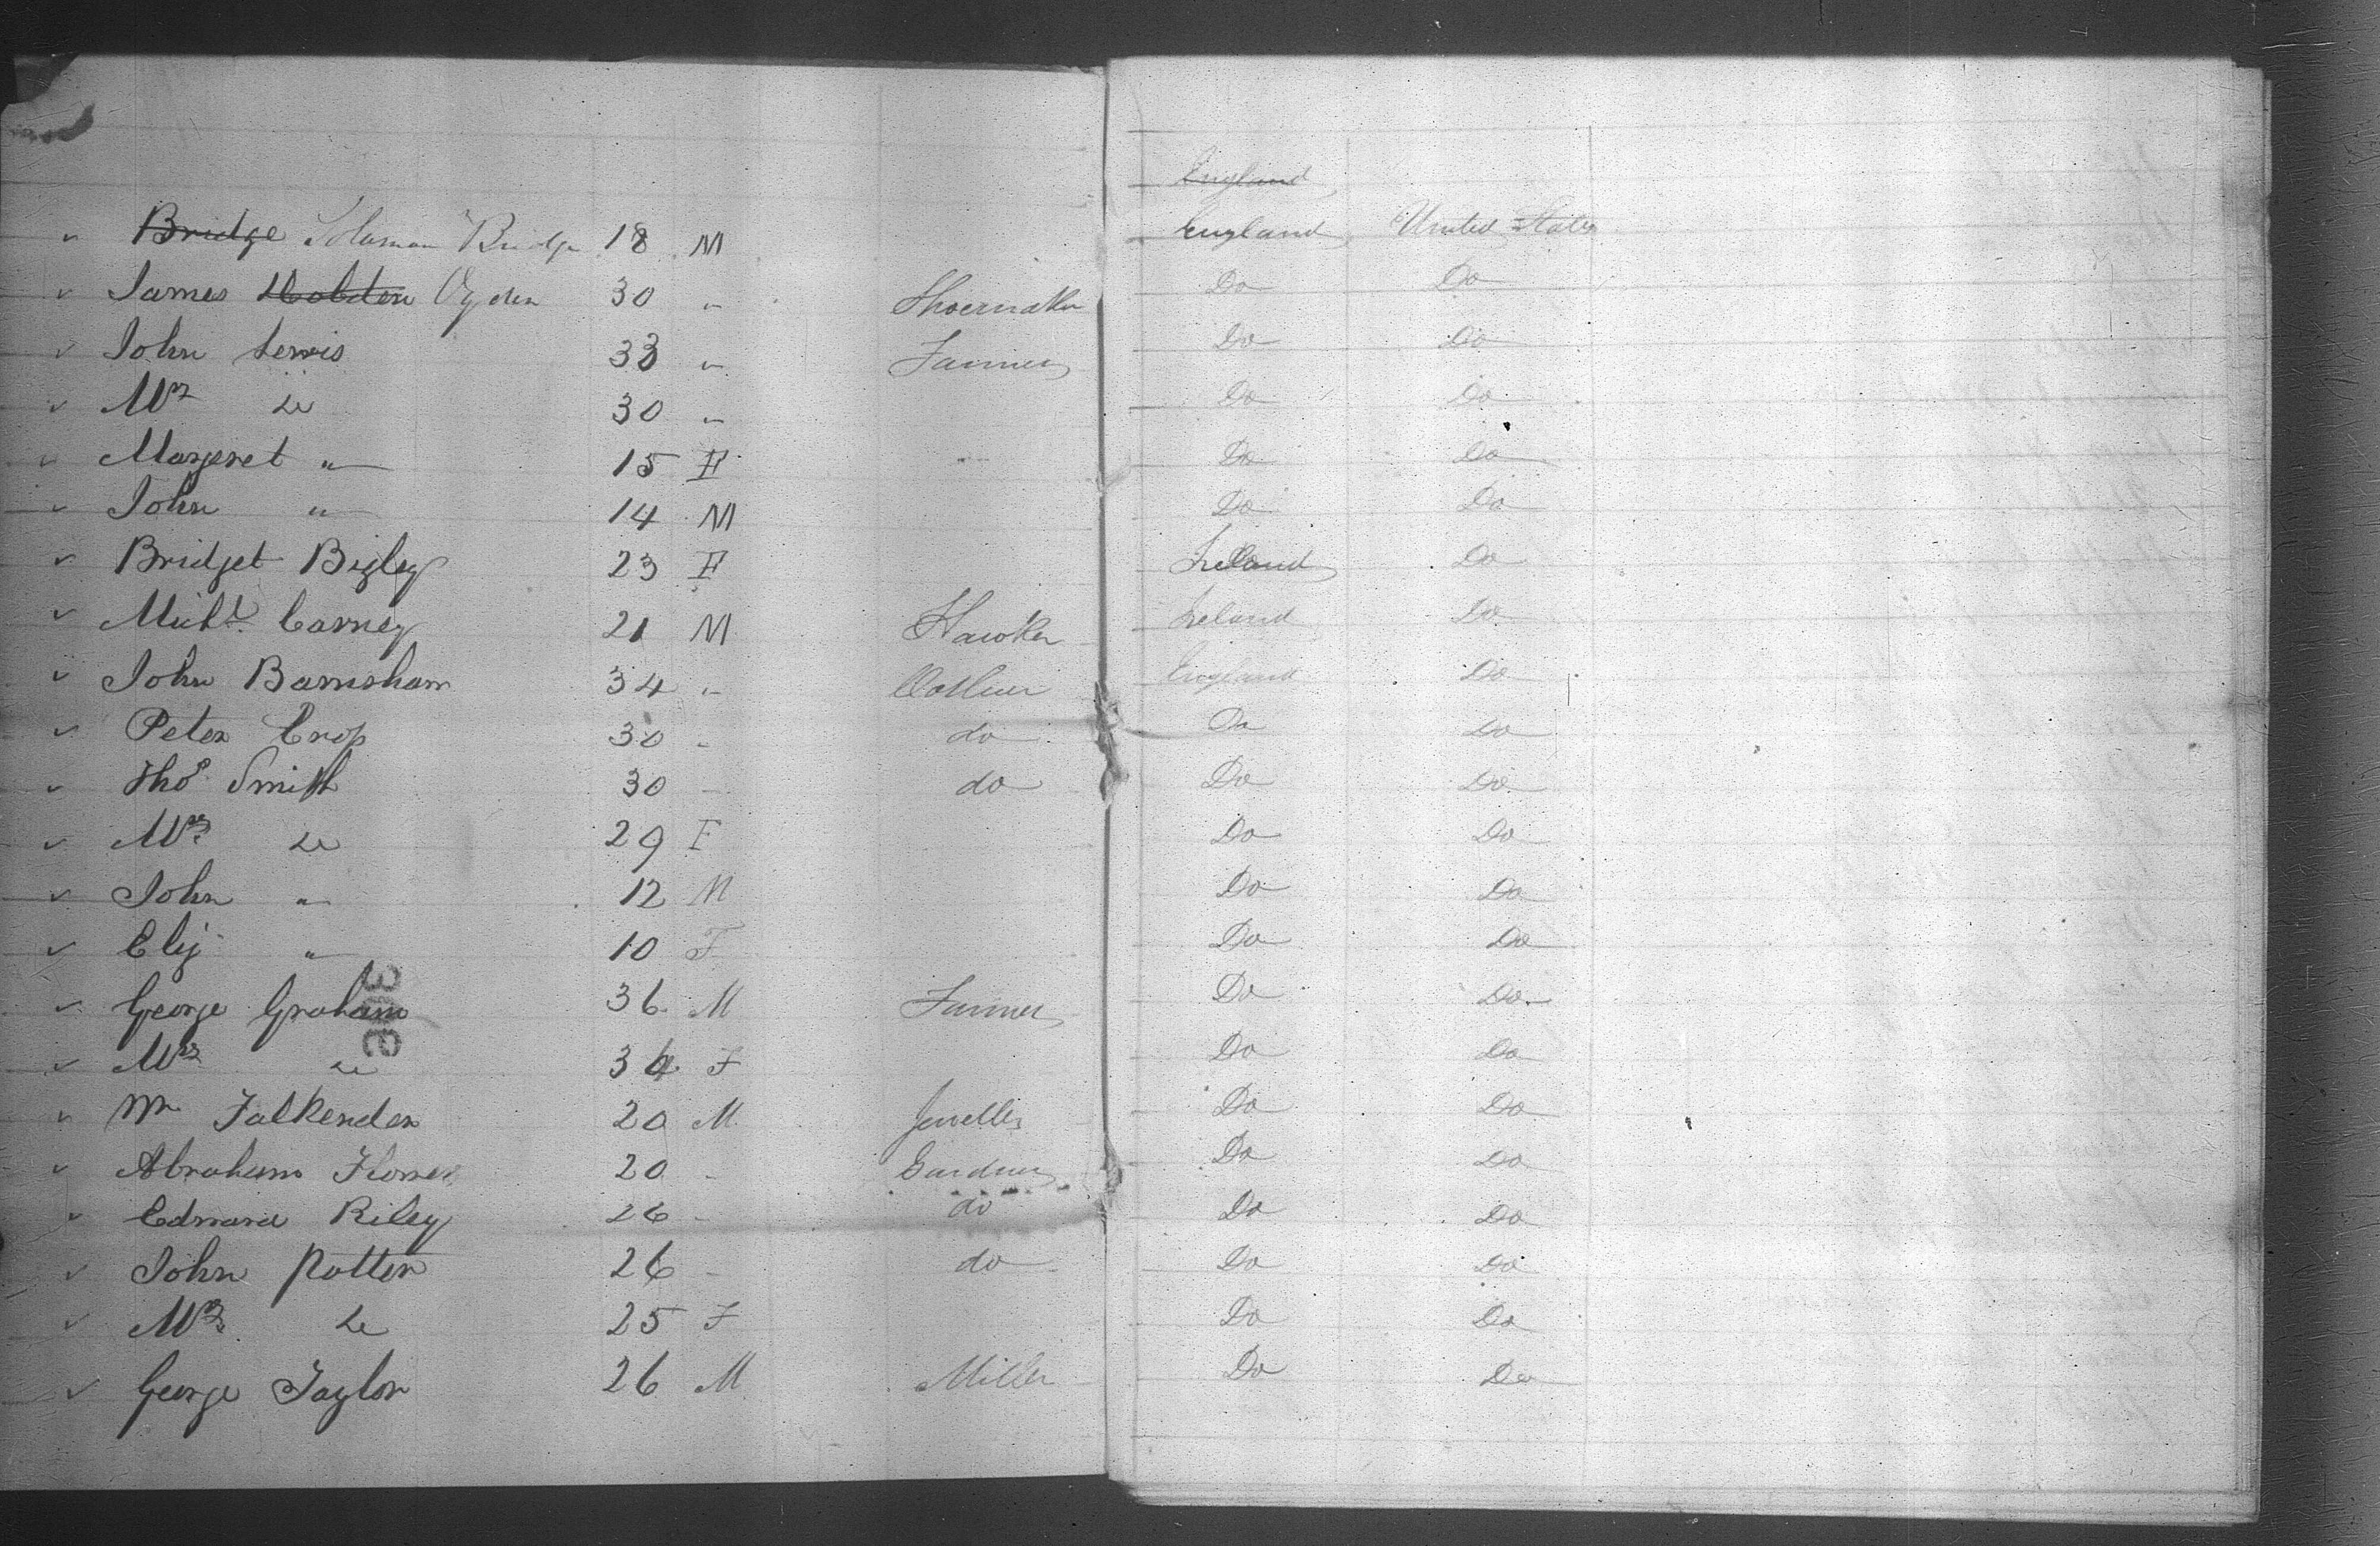 England
Bridge Soloman Bridge 18 M England United States
James Holden Ogden 30 " Shoemaker Do Do
John Lewis 33 " Farmer Do Do
Mrs Do 30 " Do Do
Margeret " 15 F Do Do
John " 14 M Do Do
Bridget Bigley 23 F Ireland Do
Michl. Carney 21 M Hawker Ireland Do
John Barnsham 34 " England Do
Peter Crop 30 " do Do Do
Thos Smith 30 " do Do Do
Mrs Do 29 F Do Do
John " 12 M Do Do
Eliz " 10 F Do Do
George Graham 36 M Farmer Do Do
Mrs Do 34 F Do Do
306
Wm Falkender 20 M Jeweller Do Do
Abraham Flower 20 " Gardner Do Do
Edward Riley 26 " do Do Do
John Potter 26 " do Do Do
Mrs Do 25 F Do Do
George Taylor 26 M Miller Do Do